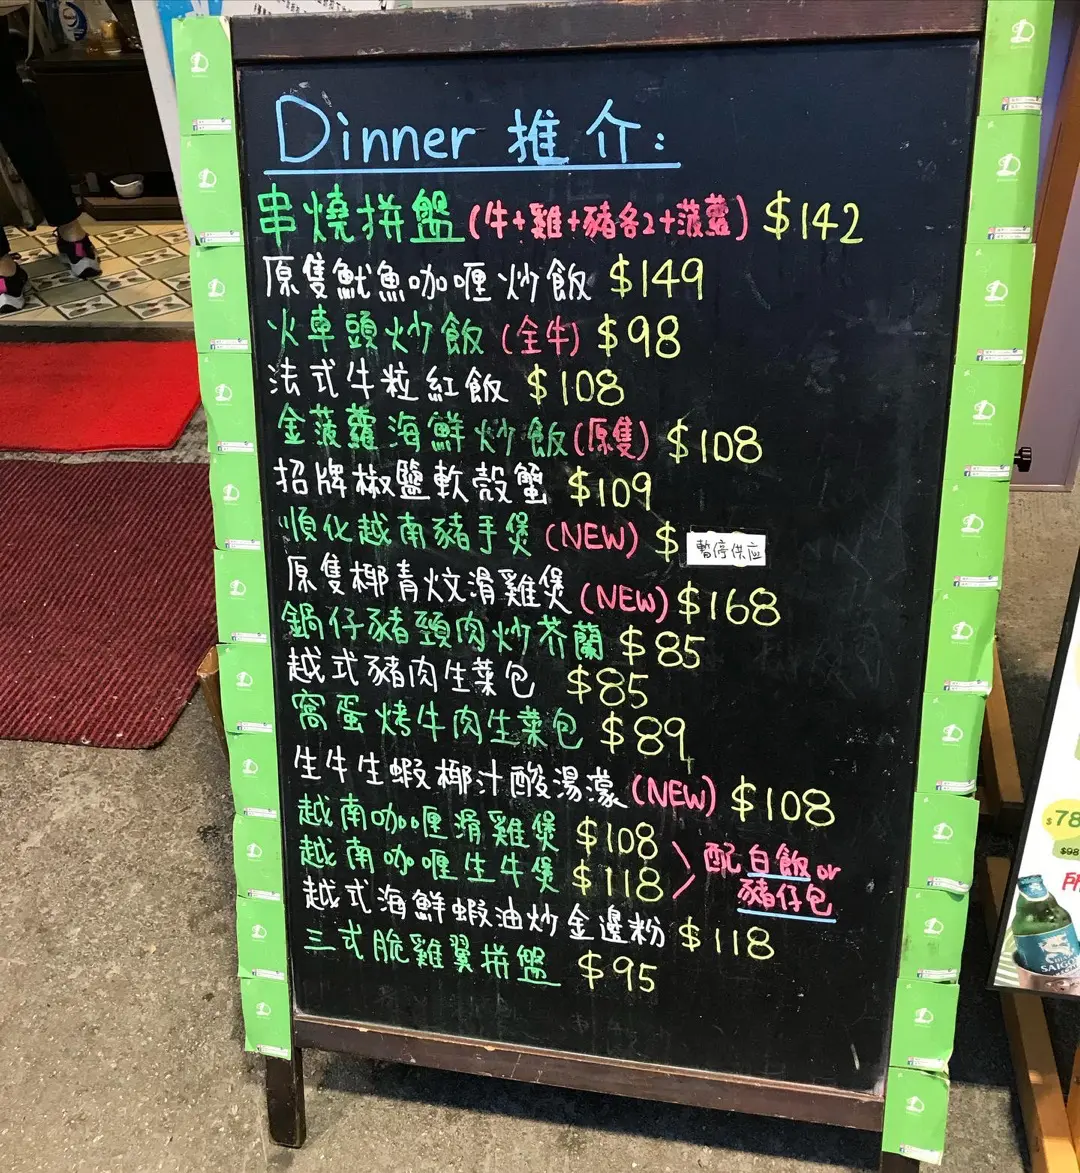 Dinner 推介:
串燒拼盤(牛+雞+豬各2+菠蘿) $142
原隻魷魚咖喱炒飯 $149
火車頭炒飯 (全牛) $98
法式牛粒紅飯 $108
金菠蘿海鮮炒飯(原隻) $108
招牌椒鹽軟殼蟹 $109
順化越南豬手煲 (NEW) $ 暫停供应
原隻椰青炆滑雞煲 (NEW) $168
鍋仔豬頸肉炒芥蘭 $85
越式豬肉生菜包 $85
窩蛋烤牛肉生菜包 $89
生牛生蝦椰汁酸湯濛 (NEW) $108
越南咖喱滑雞煲 $108
越南咖喱生牛煲 $118
配白飯or
豬仔包
越式海鮮蝦油炒金邊粉 $118
三式脆雞翼拼盤 $95
$78
$98
SAIGON